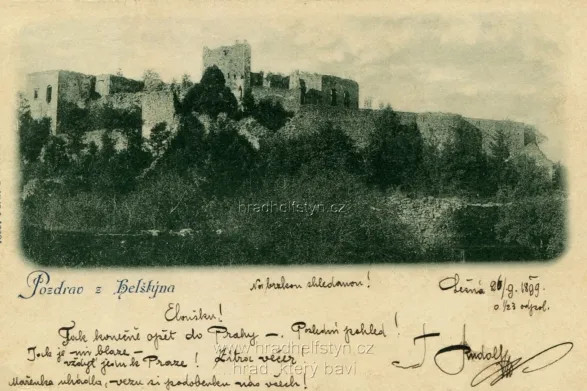 hradhelfstyn.cz
Pozdrav z Helštýna
Na brzkou shledanou!
26/9. 1899
o ½3 odpol.
Eloušku!
Tak konečně opět do Prahy – Poslední pohled!
Tak je mi blaze –
vždyť jedu k Praze! Zítra večer
www.hradhelfstyn.cz
hrad, který baví
Rudolf
Mařenka vezu si podobenku nás všech!